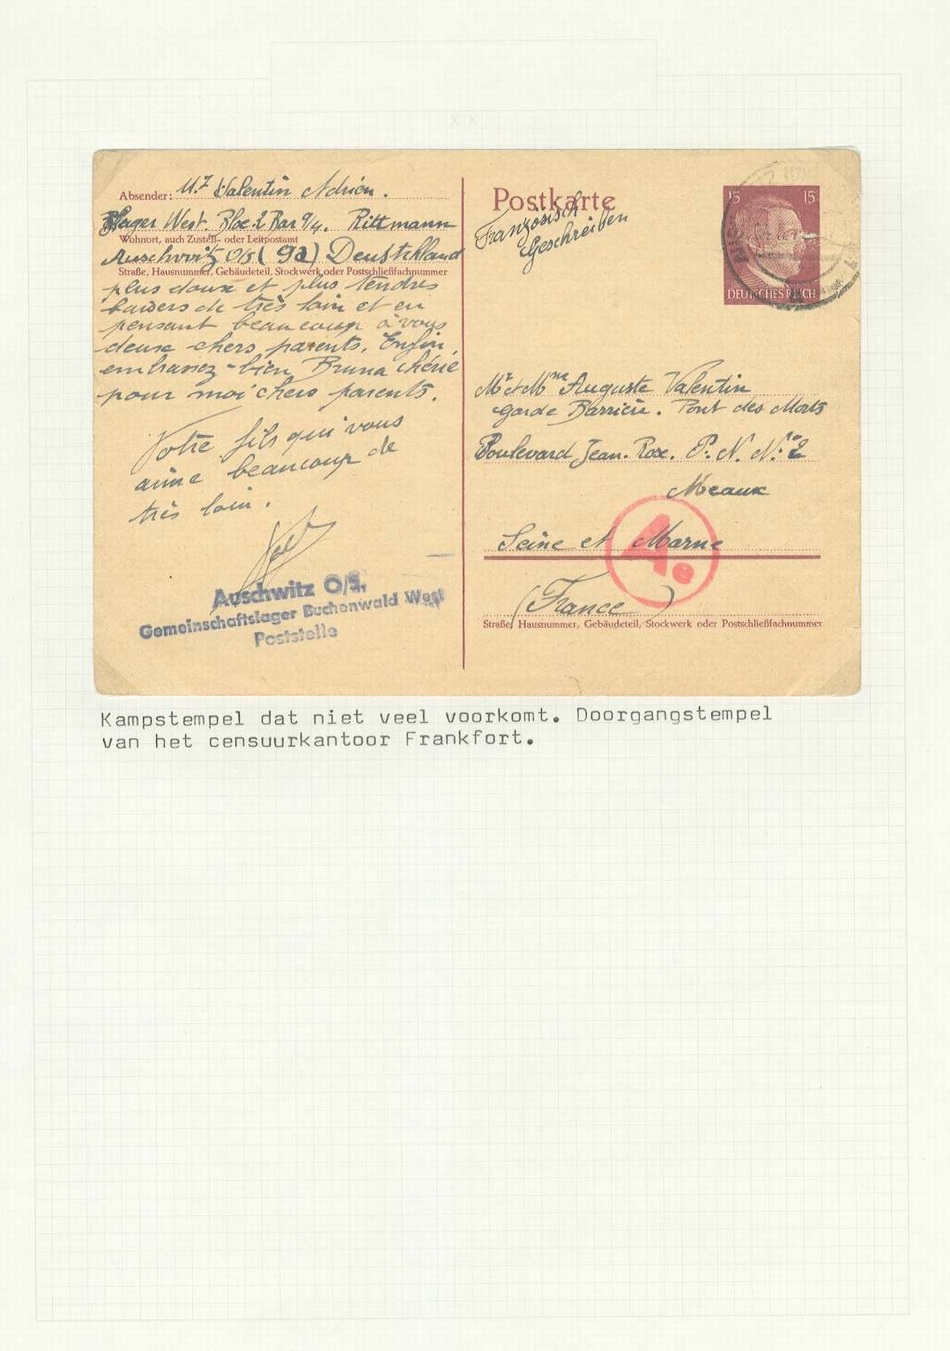 Absender: Mr Valentin Adrien.
Lager West. Bloc. 2 Bar 9/4. Rittmann
Wohnort, auch Zustell- oder Leitpostamt
Auschwitz O/S (9a) Deustchland
Straße, Hausnummer, Gebäudeteil, Stockwerk oder Postschließfachnummer
plus doux et plus tendres
baisers de très loin et en
pensant beaucoup à vous
deux chers parents. Enfin
embrassez-bien Bruna chérie
pour moi chers parents.
Votre fils qui vous
aime beaucoup de
très loin.
Auschwitz O/S.
Gemeinschaftslager Buchenwald West
Poststelle
Postkarte
Französisch
Geschreiben
15 15
DEUTSCHES REICH
Mr et Mme Auguste Valentin
Garde Barrière. Pont des Morts
Boulevard Jean. Rose. P. N. N:º 2
Meaux
Seine et Marne
Ae
(France)
Straße, Hausnummer, Gebäudeteil, Stockwerk oder Postschließfachnummer
Kampstempel dat niet veel voorkomt. Doorgangstempel
van het censuurkantoor Frankfort.